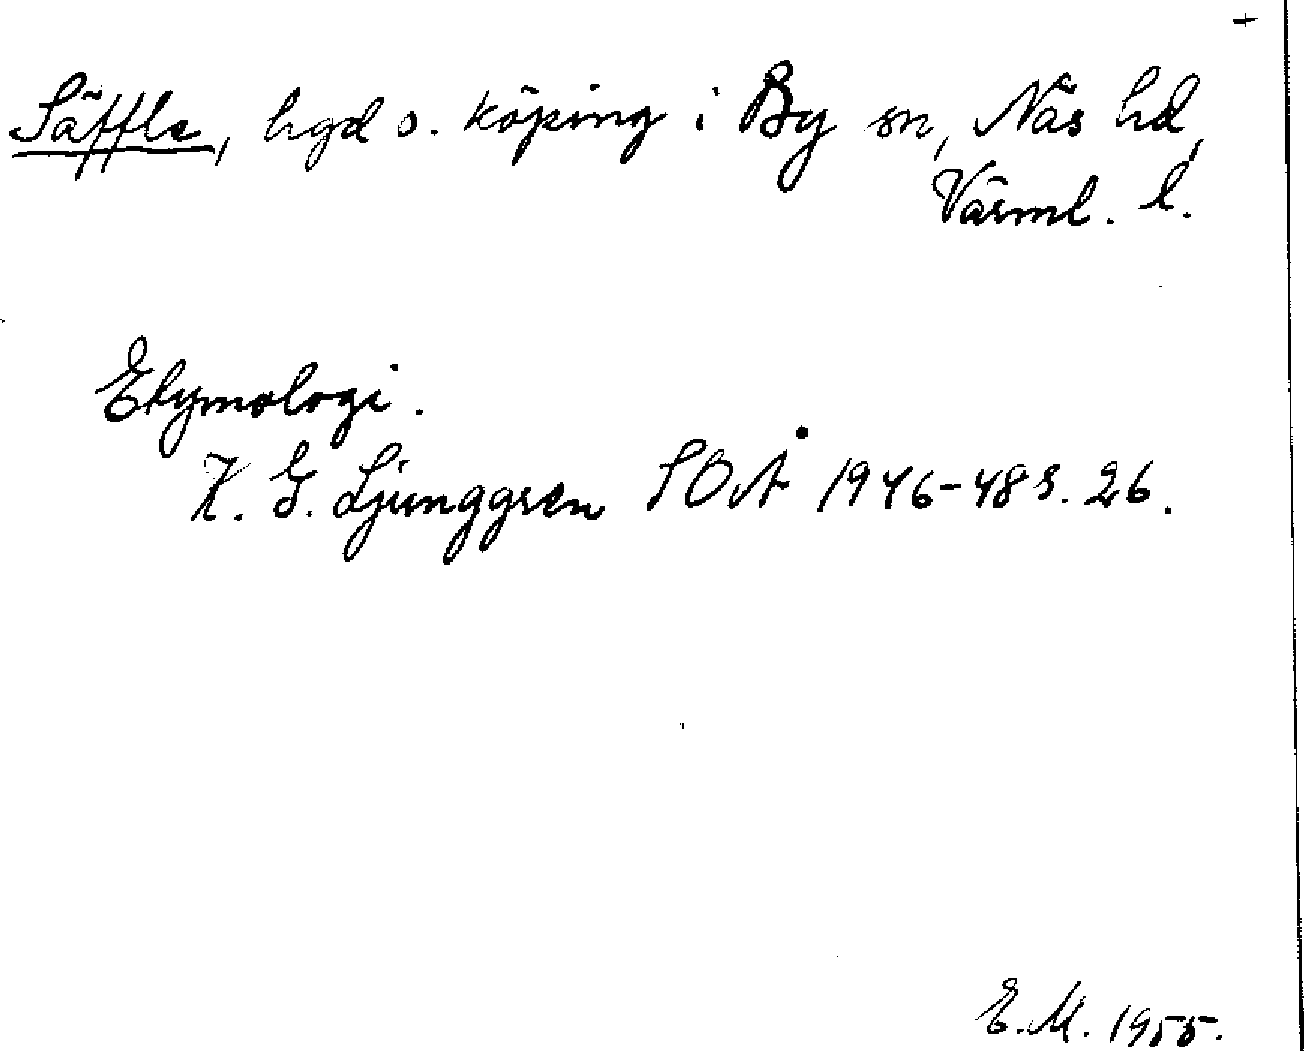 +
Säffle, hgd o. köping i By sn, Näs hd,
Värml. l.
Etymologi.
K. G. Ljunggren SOÅ 1946-48 s. 26.
E.M. 1955.